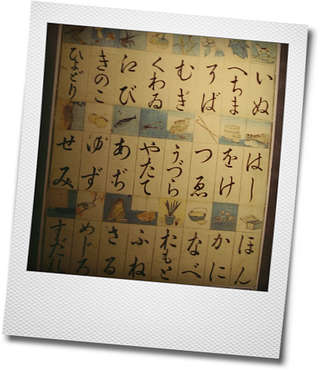 いぬ
へちま
そば
むぎ
くわゐ
江び
きのこ
ひよどり
はし
をけ
つゑ
うづら
やたて
あぢ
ゆず
せみ
ほん
かに
なべ
おもと
ふね
さる
めじろ
すだれ